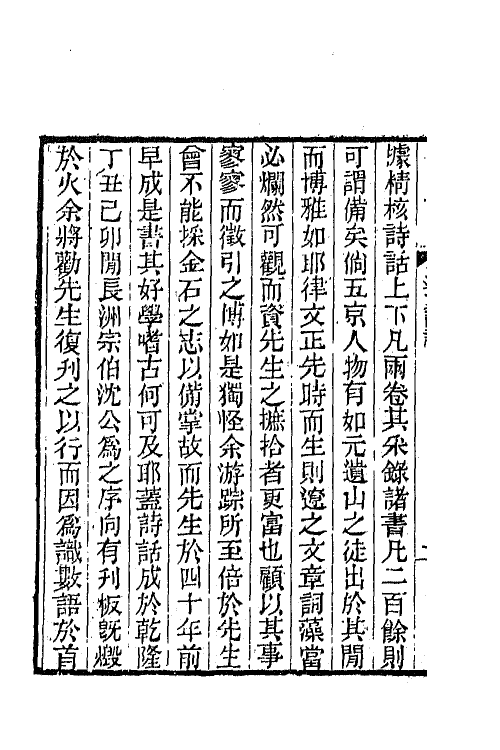 據精核詩話上下凡兩卷其采錄諸書凡二百餘則
可謂備矣倘五京人物有如元遺山之徒出於其閒
而博雅如耶律文正先時而生則遼之文章詞藻當
必爛然可觀而資先生之摭拾者更富也顧以其事
寥寥而徵引之博如是獨怪余游踪所至倍於先生
曾不能採金石之志以備掌故而先生於四十年前
早成是書其好學嗜古何可及耶蓋詩話成於乾隆
丁丑己卯閒長洲宗伯沈公爲之序向有刋板旣燬
於火余將勸先生復刋之以行而因爲識數語於首